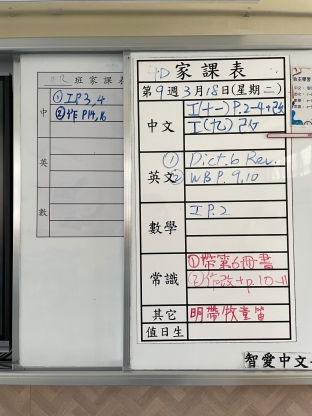 班家課表
中
① I P3,4
② 作 P14,16
英
數
4D 家課表
第 9 週 3 月 18 日(星期 二)
中文
I(十一) P.2-4+改
I(九) 改
英文
① Dict. 6 Rev.
② WB P.9,10
數學
I P.2
常識
①帶第6冊書
②作改+p.10-11
其它
明帶牧童笛
值日生
智愛中文